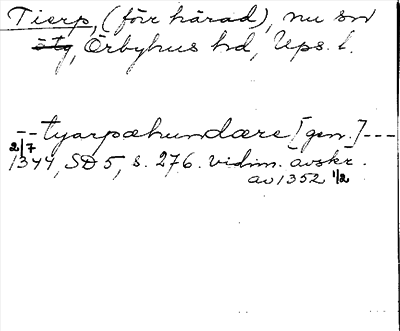 Tierp, (förr härad), nu sn
ätg, Örbyhus hd, Ups. l.
--tyarpæhundære [gen.]---
2/7
1344, SD 5, s. 276. vidim. avskr.
av 1352 1/2